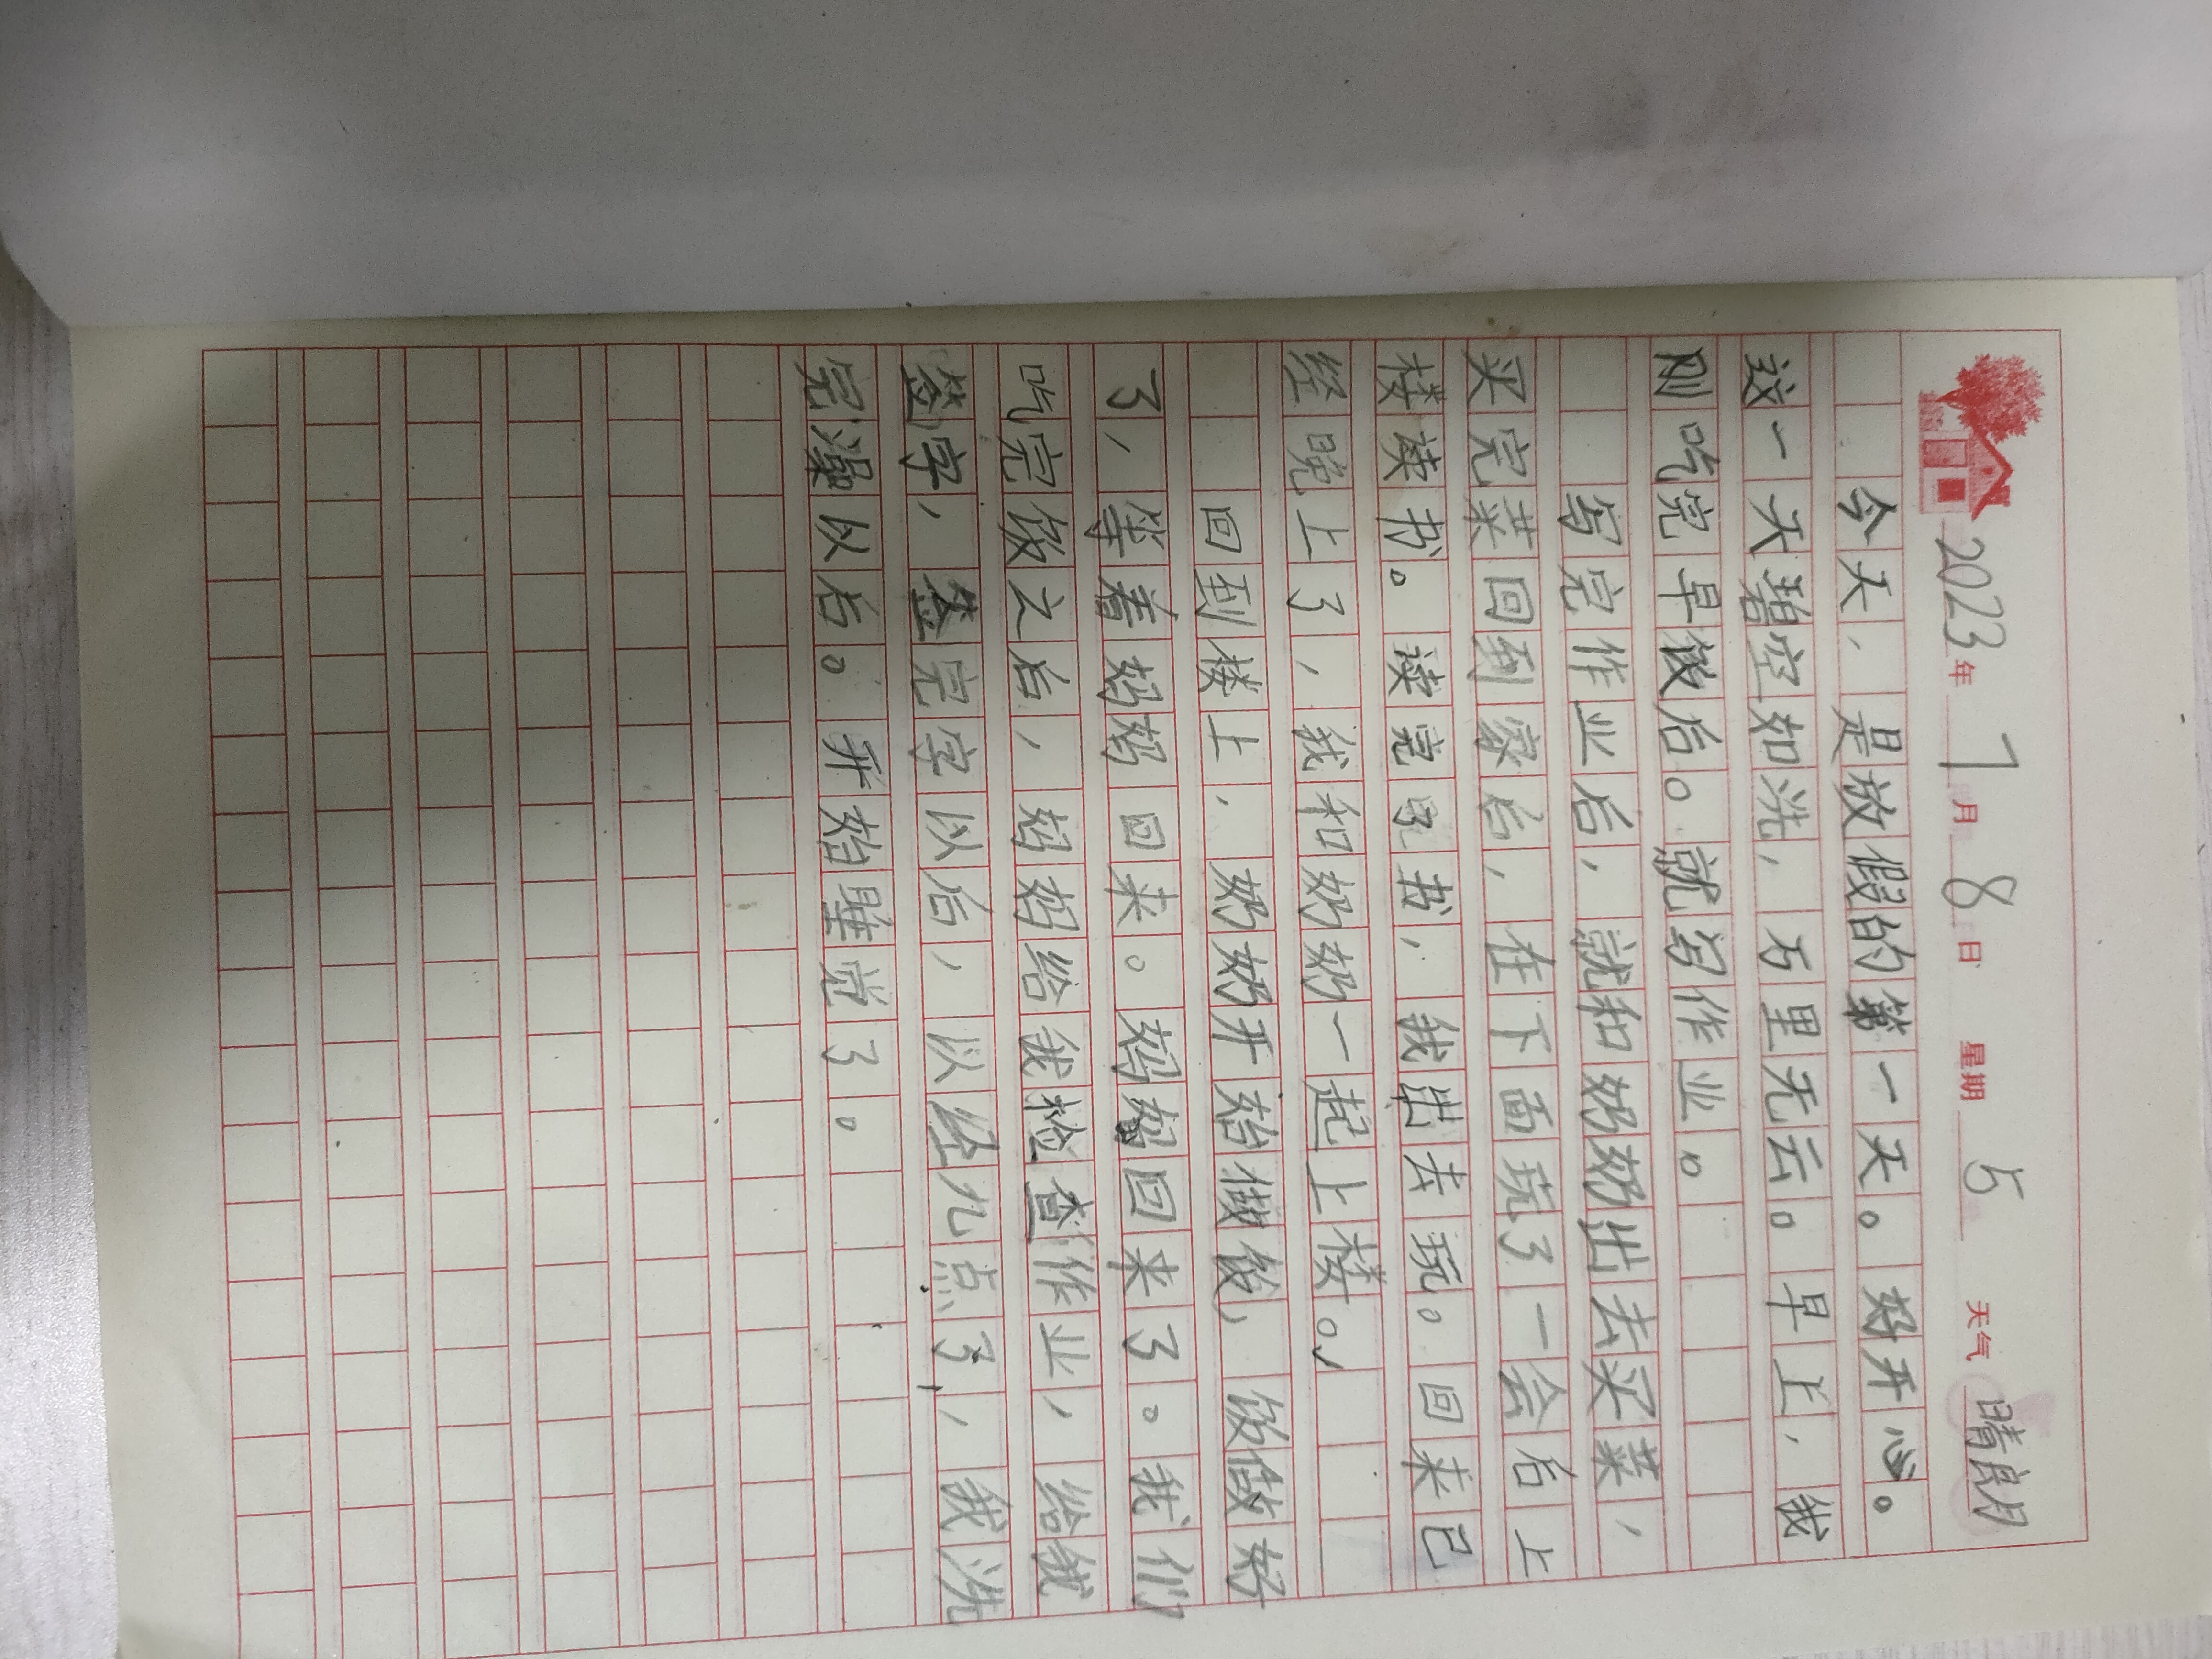 2023年 7月 8日 星期 5 天气 晴朗
今天，是放假的第一天。好开心。
这一天碧空如洗，万里无云。早上，我
刚吃完早饭后。就写作业。
写完作业后，就和奶奶出去买菜，
买完菜回到家后，在下面玩了一会后上
楼读书。读完了书，我出去玩。回来已
经晚上了，我和奶奶一起上楼。
回到楼上，奶奶开始做饭，饭做好
了，等着妈妈回来。妈妈回来了。我们
吃完饭之后，妈妈给我检查作业，给我
签字，签完字以后，以经九点了，我洗
完澡以后。开始睡觉了。